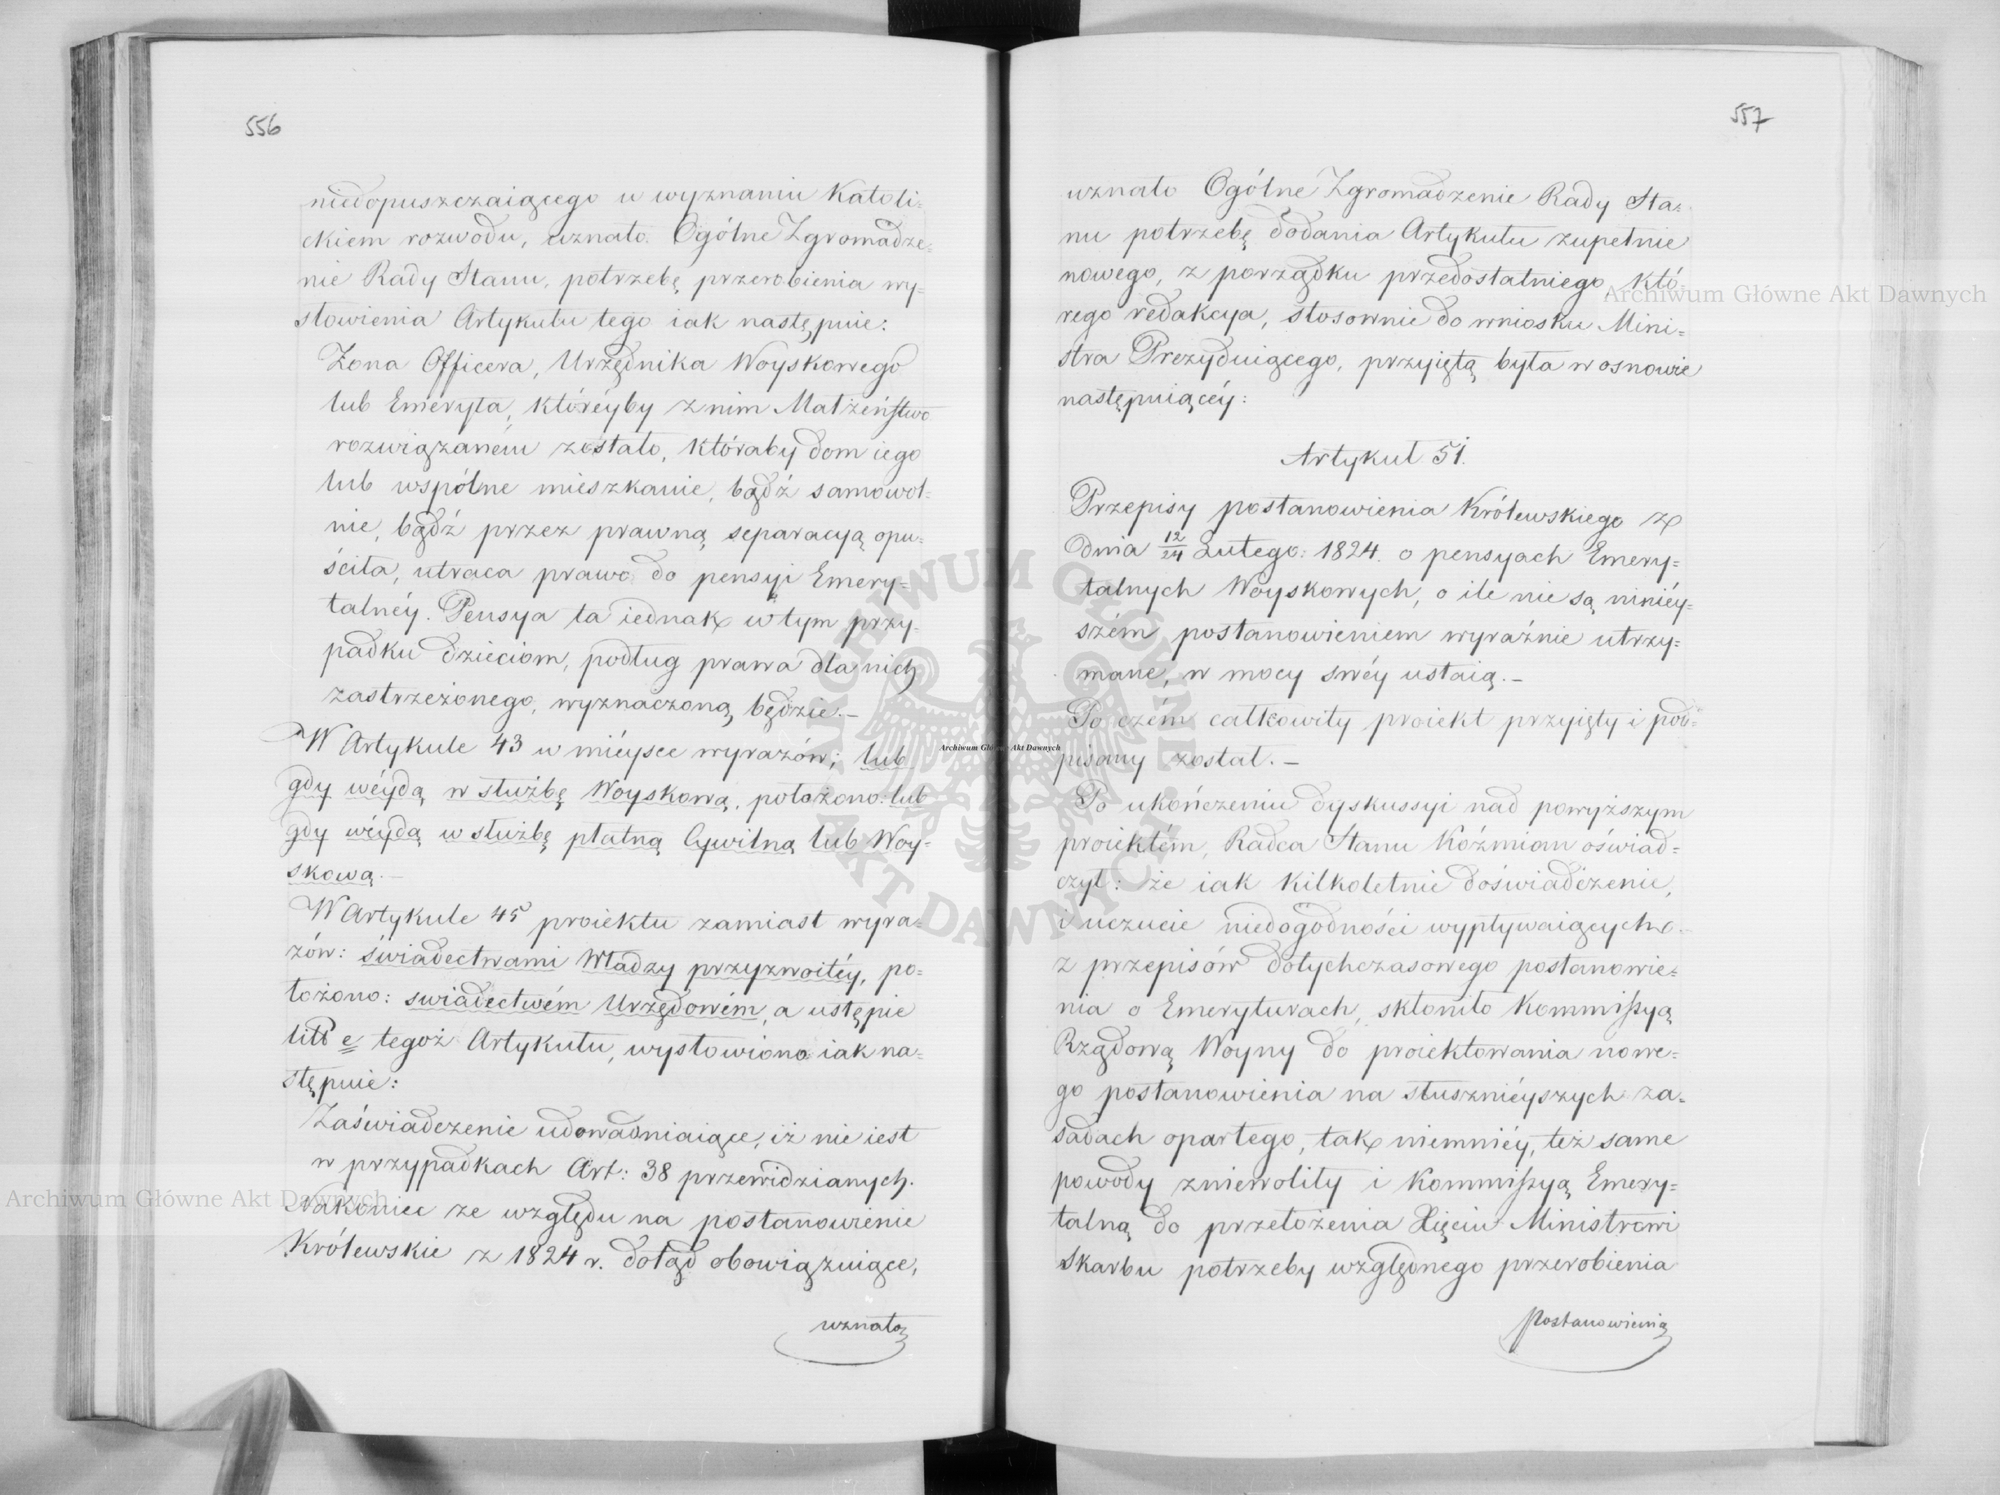 556
niedopuszczaiącego w wyznaniu Katoli=
ckiem rozwodu, uznało Ogólne Zgromadze=
nie Rady Stanu, potrzebę przerobienia wy=
słowienia Artykułu tego iak następuie:
Żona Officera, Urzędnika Woyskowego
lub Emeryta, któréyby z nim Małżeństwo
rozwiązaném zostało, któraby dom iego
lub wspólne mieszkanie, bądź samowol=
nie, bądź przez prawną separacyą opu=
ściła, utraca prawo do pensyi Emery=
talnéy. Pensya ta iednak w tym przy=
padku dzieciom, podług prawa dla nich
zastrzeżonego, wyznaczoną będzie.–
W Artykule 43 w mieysce wyrazów; lub
gdy wéydą w służbę Woyskową, położono: lub
gdy wéydą w służbę płatną Cywilną lub Woy=
skową.–
W Artykule 45 proiektu zamiast wyra=
zów: świadectwami Władzy przyzwoitéy, po=
łożono: swiadectwém Urzędowém, a ustępie
litt e tegoż Artykułu, wysłowiono iak na=
stępuie:
Zaświadczenie udowadniaiące, iż nie iest
w przypadkach Art: 38 przewidzianych.
Nakoniec ze względu na postanowienie
Królewskie z 1824 r. dotąd obowiązuiące,
uznało
557
uznało Ogólne Zgromadzenie Rady Sta=
nu potrzebę dodania Artykułu zupełnie
nowego, z porządku przedostatniego, któ=
rego redakcya, stosownie do wniosku Mini=
stra Prezyduiącego, przyiętą była w osnowie
następuiącéy:
Artykuł 51.
Przepisy postanowienia Królewskiego z
dnia 12/24 Lutego: 1824. o pensyach Emery=
talnych Woyskowych, o ile nie są niniéy=
szém postanowieniem wyraźnie utrzy=
mane, w mocy swéy ustaią.–
Po czém całkowity proiekt przyięty i pod=
pisany został.–
Po ukończeniu dyskussyi nad powyższym
proiektém, Radca Stanu Koźmian oświad=
czył: że iak kilkoletnie doświadczenie,
i uczucie niedogodności wypływaiących
z przepisów dotychczasowego postanowie=
nia o Emeryturach, skłoniło Kommissyą
Rządową Woyny do proiektowania nowe=
go postanowienia na słusznieyszych za=
sadach opartego, tak niemniéy, też same
powody zniewoliły i Kommissyą Emery=
talną do przełożenia Xięciu Ministrowi
Skarbu potrzeby względnego przerobienia
Postanowienia
Archiwum Główne Akt Dawnych
Archiwum Główne Akt Dawnych
Archiwum Główne Akt Dawnych
ARCHIWUM GŁÓWNE AKT DAWNYCH